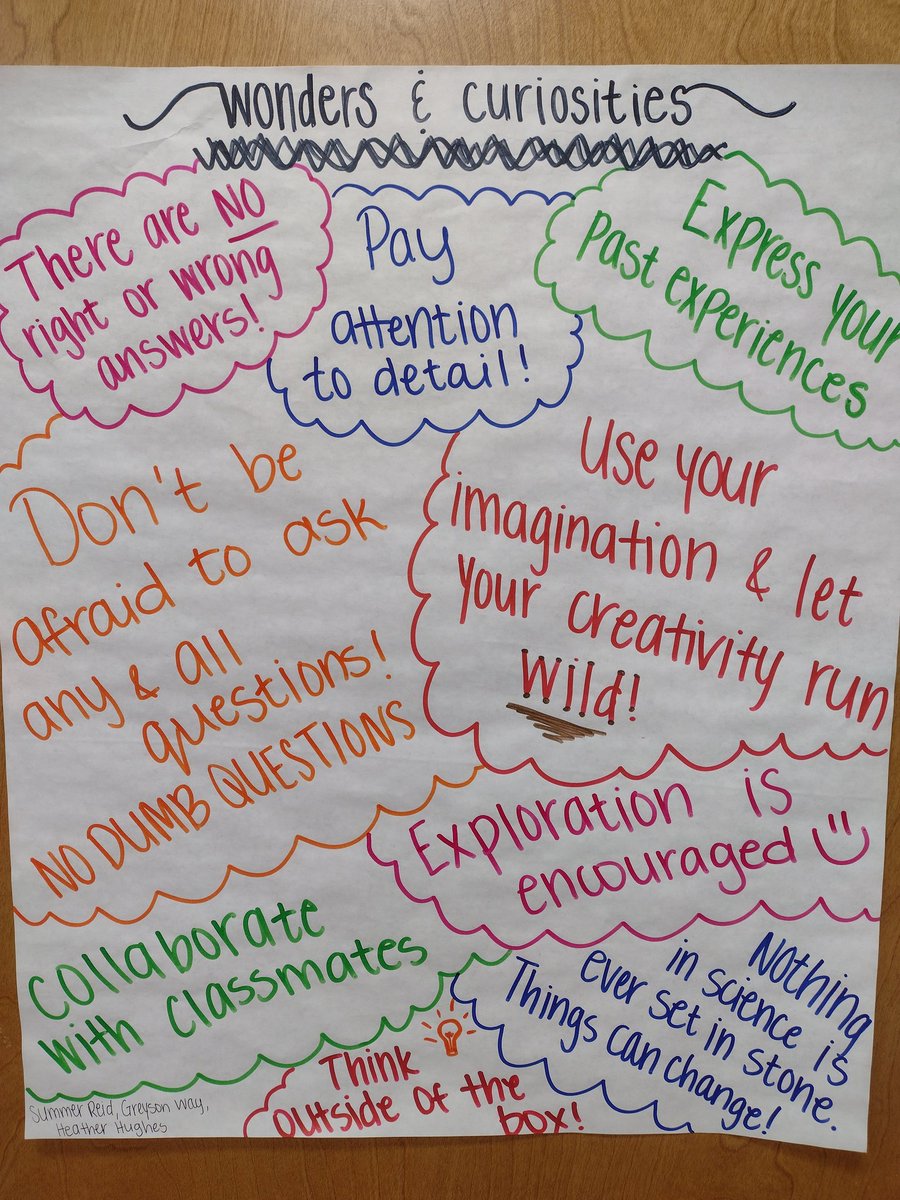 wonders & curiosities
There are NO
right or wrong
answers!
Pay
attention
to detail!
Express your
past experiences
Don't be
afraid to ask
any & all
questions!
NO DUMB QUESTIONS
Use your
imagination & let
your creativity run
wild!
Exploration is
encouraged
Collaborate
with classmates
Nothing
in science is
ever set in stone.
Things can change!
Think
outside of the
box!
Summer Reid, Greyson Way,
Heather Hughes